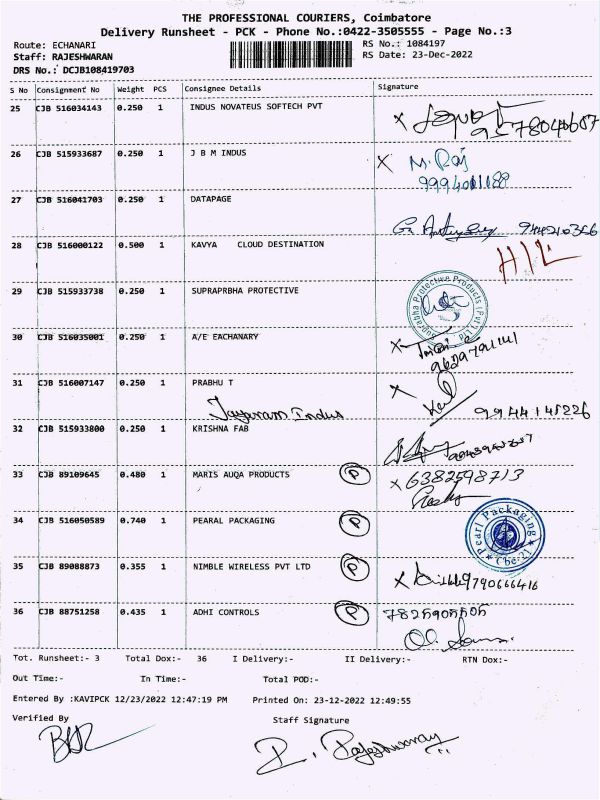 THE PROFESSIONAL COURIERS, Coimbatore
Delivery Runsheet - PCK - Phone No.:0422-3505555 - Page No.:3
Route: ECHANARI RS No.: 1084197
Staff: RAJESHWARAN RS Date: 23-Dec-2022
DRS No.: DCJB108419703
S No Consignment No Weight PCS Consignee Details Signature
25 CJB 516034143 0.250 1 INDUS NOVATEUS SOFTECH PVT
26 CJB 515933687 0.250 1 J B M INDUS M. Raj
27 CJB 516041703 0.250 1 DATAPAGE
28 CJB 516000122 0.500 1 KAVYA CLOUD DESTINATION
29 CJB 515933738 0.250 1 SUPRAPRBHA PROTECTIVE
Suprabha Protective Products (Pvt) Ltd
30 CJB 516035001 0.250 1 A/E EACHANARY
31 CJB 516007147 0.250 1 PRABHU T
Jayaram Indus 9944145226
32 CJB 515933800 0.250 1 KRISHNA FAB
33 CJB 89109645 0.480 1 MARIS AUQA PRODUCTS P x 6382598713
34 CJB 516050589 0.740 1 PEARAL PACKAGING P
Pearl Packaging
Cbe-21
35 CJB 89088873 0.355 1 NIMBLE WIRELESS PVT LTD P 9790666416
36 CJB 88751258 0.435 1 ADHI CONTROLS P
Tot. Runsheet:- 3 Total Dox:- 36 I Delivery:- II Delivery:- RTN Dox:-
Out Time:- In Time:- Total POD:-
Entered By :KAVIPCK 12/23/2022 12:47:19 PM Printed On: 23-12-2022 12:49:55
Verified By Staff Signature
R. Rajeshwaran